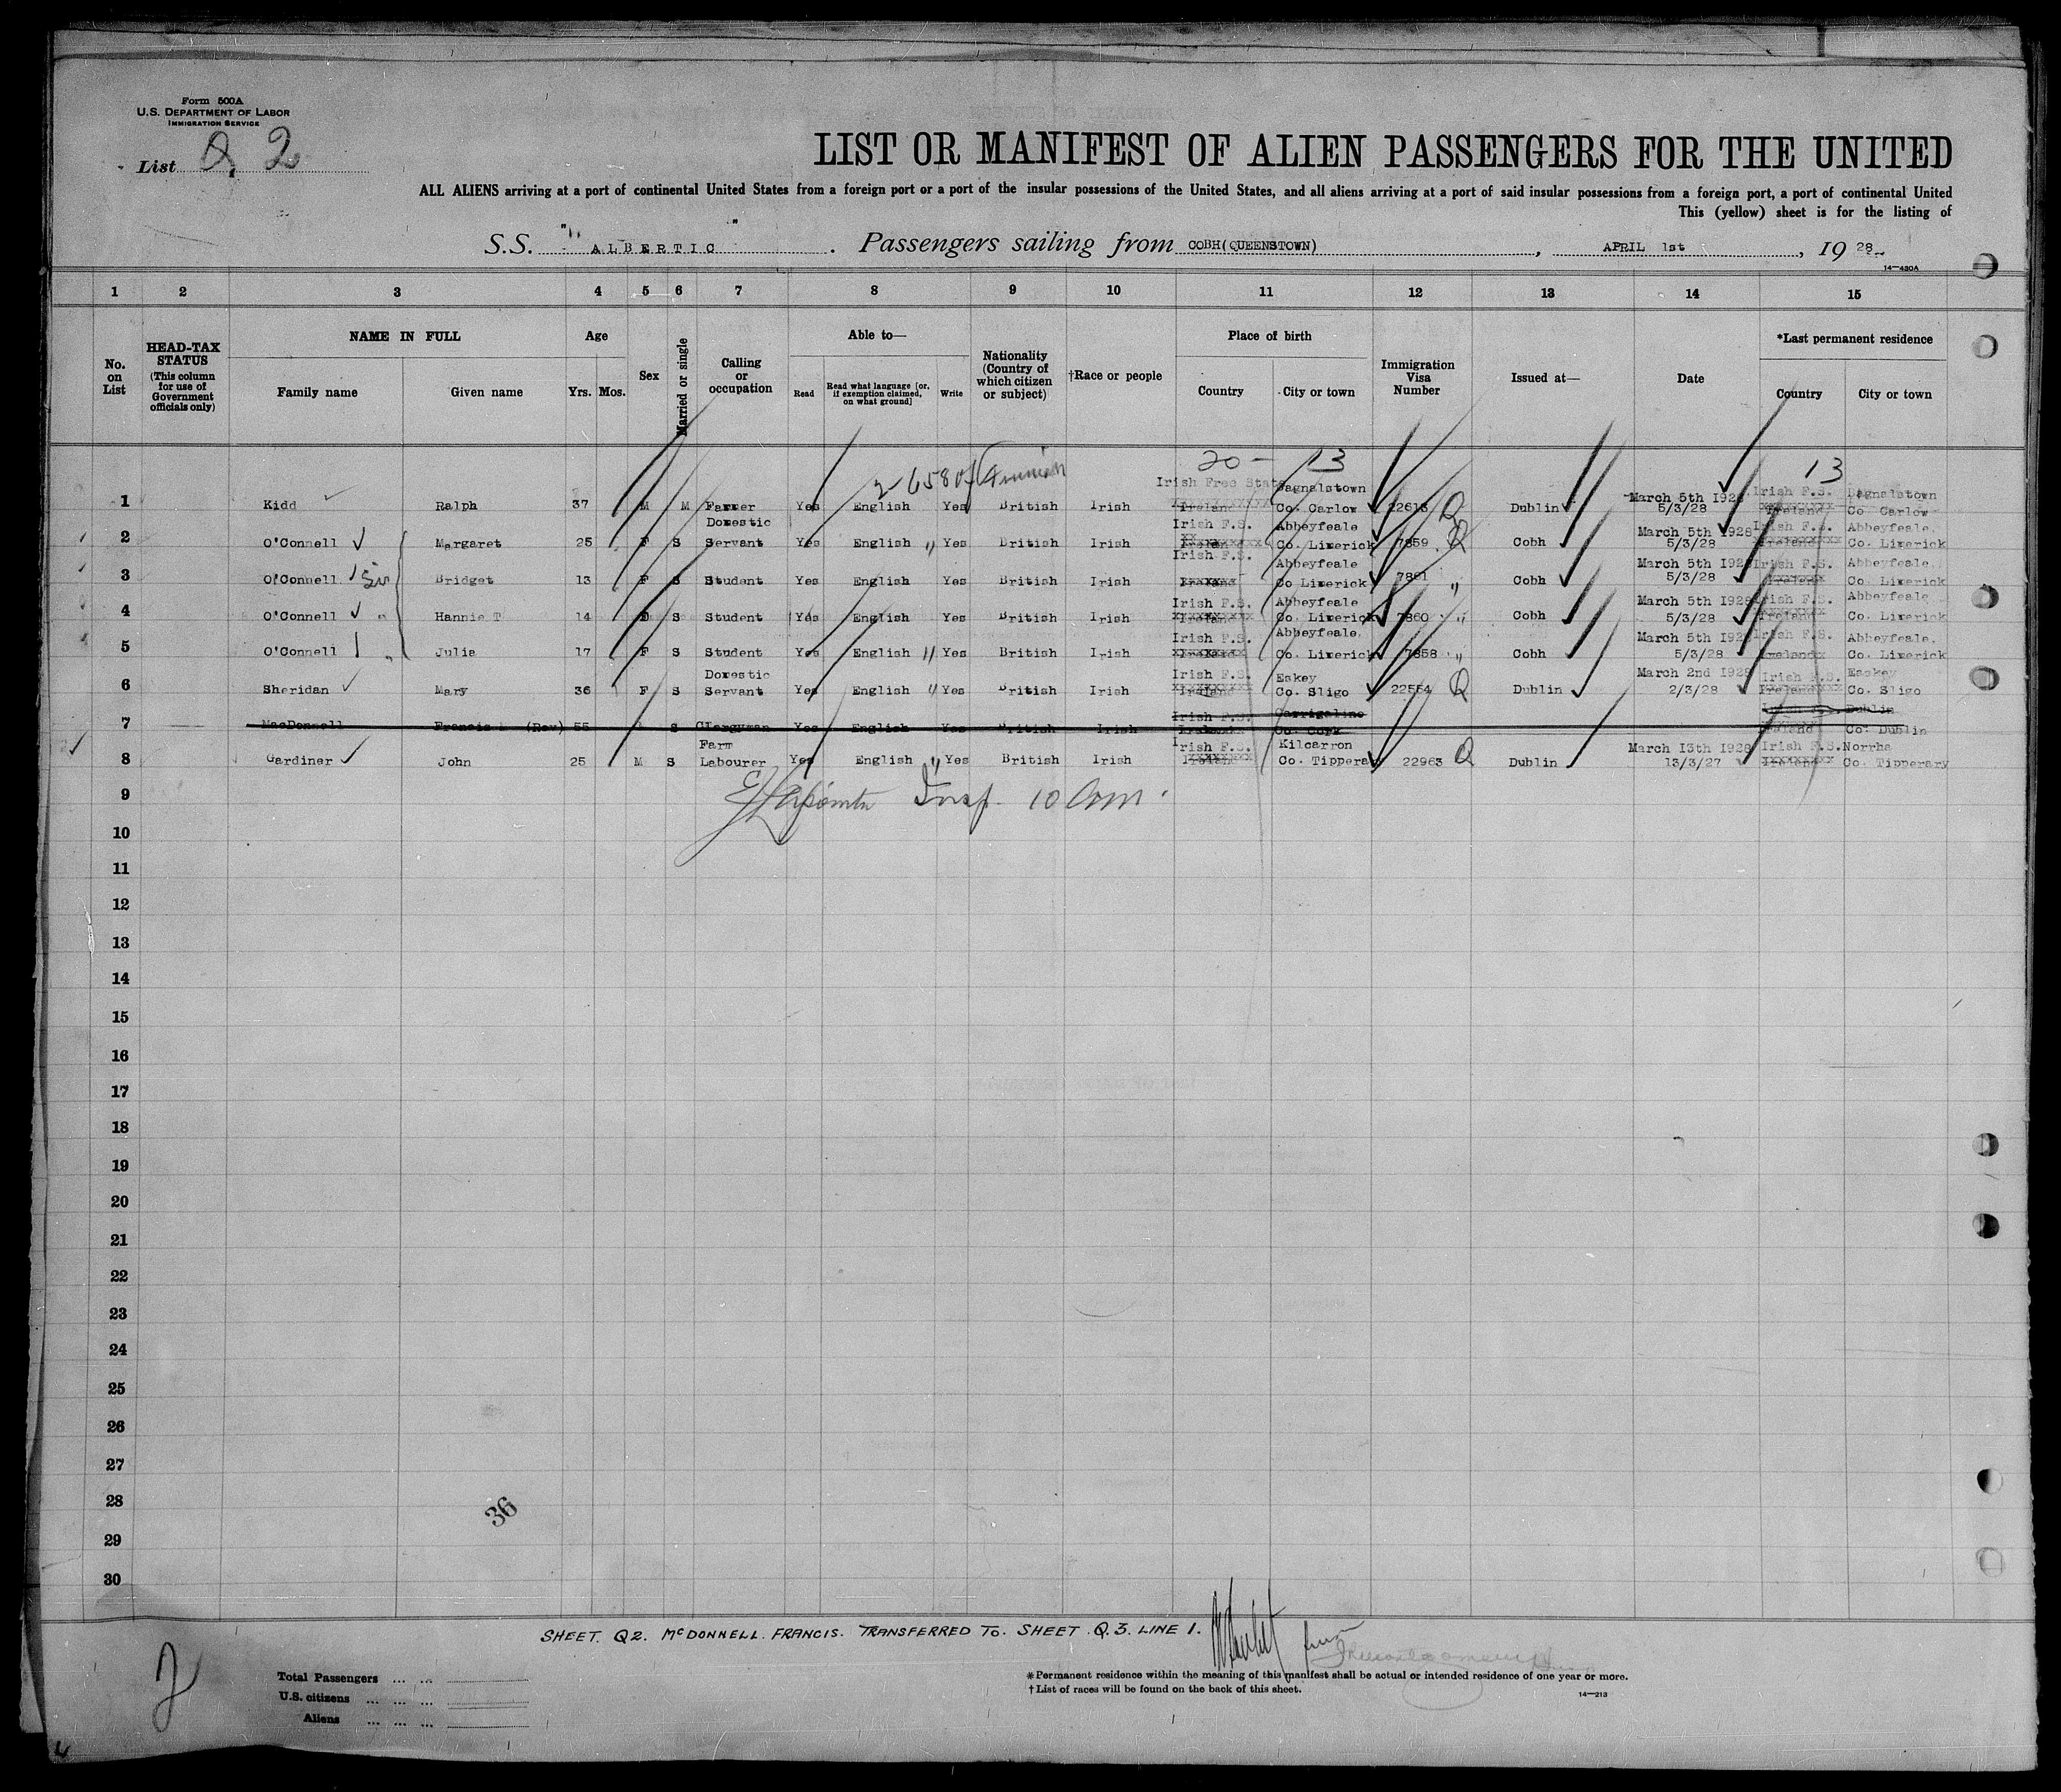 Form 500A
U.S. DEPARTMENT OF LABOR
IMMIGRATION SERVICE
List Q, 2
LIST OR MANIFEST OF ALIEN PASSENGERS FOR THE UNITED
ALL ALIENS arriving at a port of continental United States from a foreign port or a port of the insular possessions of the United States, and all aliens arriving at a port of said insular possessions from a foreign port, a port of continental United
This (yellow) sheet is for the listing of
S.S. "ALBERTIC". Passengers sailing from COBH(QUEENSTOWN), APRIL 1st, 1928
14—430A
1 2 3 4 5 6 7 8 9 10 11 12 13 14 15
No. on List
HEAD-TAX STATUS (This column for use of Government officials only)
NAME IN FULL
Family name Given name
Age
Yrs. Mos.
Sex
Married or single
Calling or occupation
Able to—
Read Read what language [or, if exemption claimed, on what ground] Write
Nationality (Country of which citizen or subject)
†Race or people
Place of birth
Country City or town
Immigration Visa Number
Issued at—
Date
*Last permanent residence
Country City or town
20 - 13 13
1 Kidd Ralph 37 M M Farmer Yes English Yes British Irish Irish Free State Ireland Bagnalstown Co. Carlow 22613 Q Dublin March 5th 1928 5/3/28 Irish F.S. Ireland Bagnalstown Co Carlow
2 O'Connell Margaret 25 F S Domestic Servant Yes English " Yes British Irish Irish F.S. Abbeyfeale Co. Limerick 7859 Q Cobh March 5th 1928 5/3/28 Irish F.S. Ireland Abbeyfeale. Co. Limerick
3 O'Connell Bridget 13 F S Student Yes English Yes British Irish Irish F.S. Abbeyfeale Co Limerick 7861 " Cobh March 5th 1928 5/3/28 Irish F.S. Abbeyfeale. Co. Limerick
4 O'Connell " Hannie T 14 S Student Yes English Yes British Irish Irish F.S. Ireland Abbeyfeale Co. Limerick 7860 " Cobh March 5th 1928 5/3/28 Irish F.S. Ireland Abbeyfeale Co. Limerick
5 O'Connell " Julia 17 F S Student Yes English " Yes British Irish Irish F.S. Abbeyfeale. Co. Limerick 7858 " Cobh March 5th 1928 5/3/28 Irish F.S. Ireland Abbeyfeale. Co. Limerick
6 Sheridan Mary 36 F S Domestic Servant Yes English " Yes British Irish Irish F.S. Ireland Easkey Co. Sligo 22554 Q Dublin March 2nd 1928 2/3/28 Irish F.S. Ireland Easkey Co. Sligo
7 MacDonnell Francis (Rev) 55 S Clergyman Yes English Yes British Irish Irish F.S. Carrigaline Co. Cork Ireland Dublin Co. Dublin
8 Gardiner John 25 M S Farm Labourer Yes English " Yes British Irish Irish F.S. Ireland Kilcarron Co. Tipperary 22963 Q Dublin March 13th 1928 13/3/27 Irish F.S. Ireland Norrha Co. Tipperary
9 Insp. 10 am.
10
11
12
13
14
15
16
17
18
19
20
21
22
23
24
25
26
27
28
29
30
36
SHEET. Q2. McDONNELL. FRANCIS. TRANSFERRED TO. SHEET. Q.3. LINE 1.
2
Total Passengers ... ...
U.S. citizens ... ... ...
Aliens ... ... ...
*Permanent residence within the meaning of this manifest shall be actual or intended residence of one year or more.
†List of races will be found on the back of this sheet.
14—213